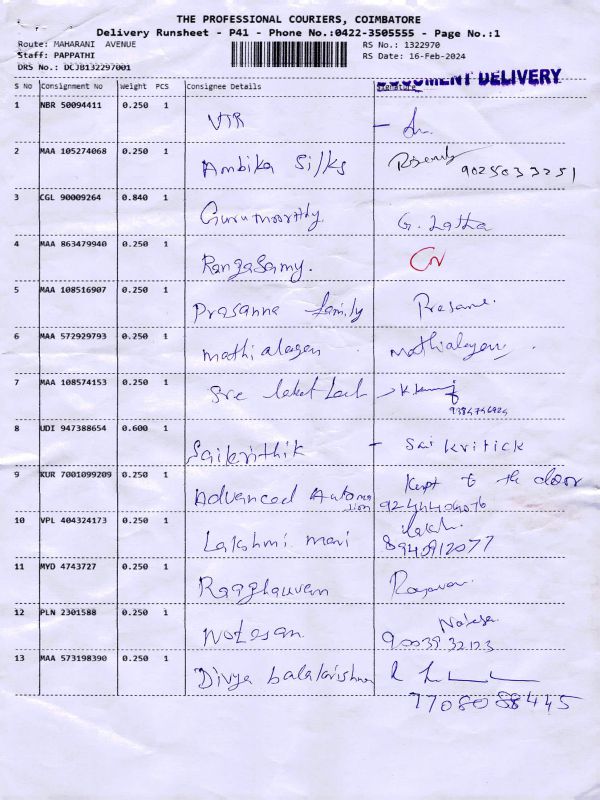 THE PROFESSIONAL COURIERS, COIMBATORE
Delivery Runsheet - P41 - Phone No.:0422-3505555 - Page No.:1
Route: MAHARANI AVENUE RS No.: 1322970
Staff: PAPPATHI RS Date: 16-Feb-2024
DRS No.: DCJB132297001
DOCUMENT DELIVERY
S No Consignment No Weight PCS Consignee Details Signature
1 NBR 50094411 0.250 1
2 MAA 105274068 0.250 1 Ambika Silks 9025033251
3 CGL 90009264 0.840 1 Gurumoorthy G. Latha
4 MAA 863479940 0.250 1 Rangasamy.
5 MAA 108516907 0.250 1 Prasanna family Prasanna.
6 MAA 572929793 0.250 1 mathialagan mathialagan
7 MAA 108574153 0.250 1 Sre
8 UDI 947388654 0.600 1 Saikrithik - Sai kritick
9 KUR 7001099209 0.250 1 Advanced Automation Kept to the door
10 VPL 404324173 0.250 1 Lakshmi mani
8940912077
11 MYD 4743727 0.250 1 Raaghauvan
12 PLN 2301588 0.250 1 Notesan Natesa
9003932123
13 MAA 573198390 0.250 1 Divya balakrishnan
7708088445